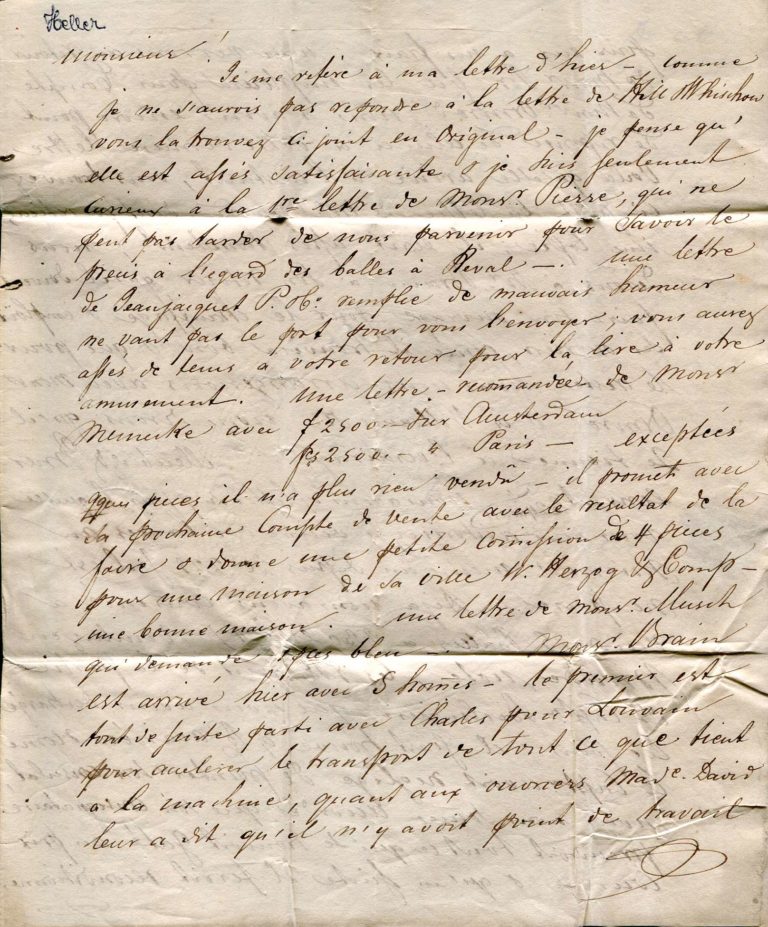 Heller
Monsieur!
Je me refère à ma lettre d'hier – comme
je ne saurois pas repondre à la lettre de Hill &
vous la trouvez ci joint en Original – je pense qu'
elle est assés satisfaisante & je suis seulement
curieux à la 1re lettre de Monsr Pierre, qui ne
peut pas tarder de nous parvenir pour savoir le
precis à l'egard des balles à Reval –. une lettre
de Jeanjaquet P. & Co remplie de mauvais humeur
ne vaut pas le port pour vous l'envoyer, vous aurez
assés de tems a votre retour pour la lire à votre
amusement. une lettre – recomandée – de Monsr
Meinecke avec f 2500 – sur Amsterdam
fcs 2500 – " Paris – exceptées
qques pieces il n'a plus rien vendû – il promet avec
sa prochaine Compte de vente avec le resultat de la
foire & donne une petite Comission de 4 pieces
pour une maison de sa ville W. Herzog & Comp –
une bonne maison. une lettre de Monsr. Musch
qui demande pces bleu –. Monsr. Brain
est arrivé hier avec 5 homes – le premier est
tout de suite parti avec Charles pour Louvain
pour acelerer le transport de tout ce que tient
a la machine, quant aux ouvriers Made. David
leur a dit qu'il n'y avoit point de travail